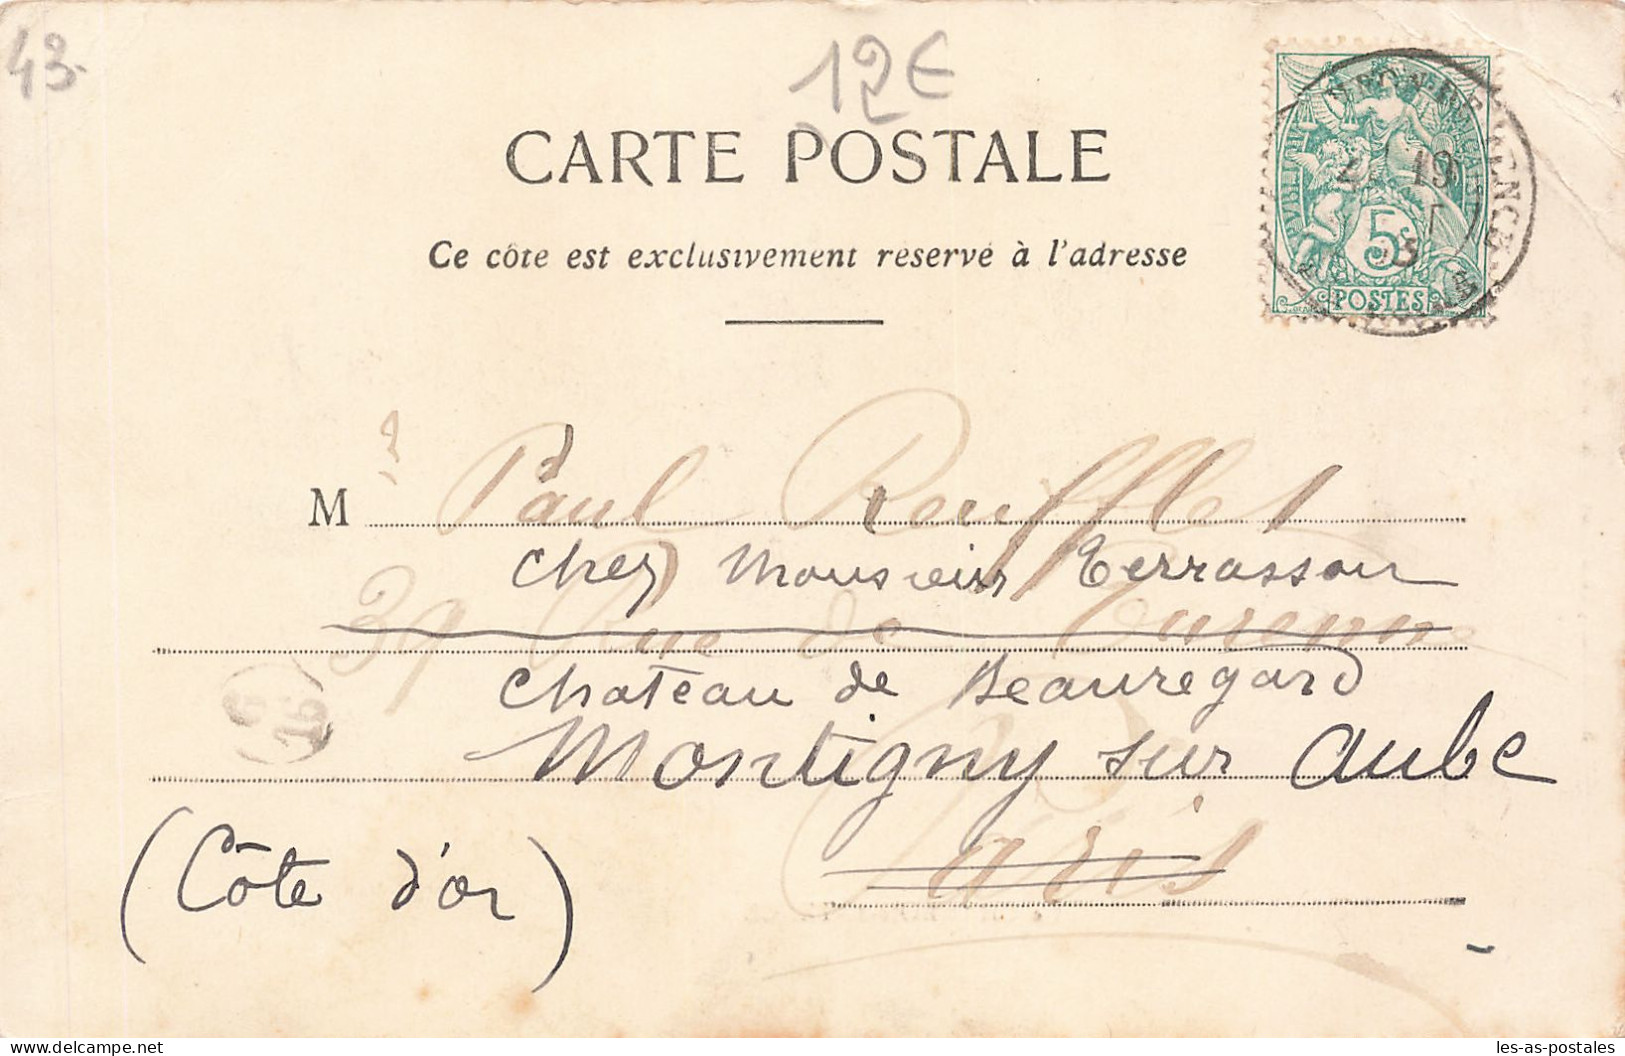 43.
12€
CARTE POSTALE
Ce côté est exclusivement réservé à l'adresse
5
POSTES
M Paul Reufflet
chez Monsieur Terrasson
39 Rue de Turenne
Chateau de Beauregard
Montigny sur Aube
Paris
(Côte d'or)
les-as-postales